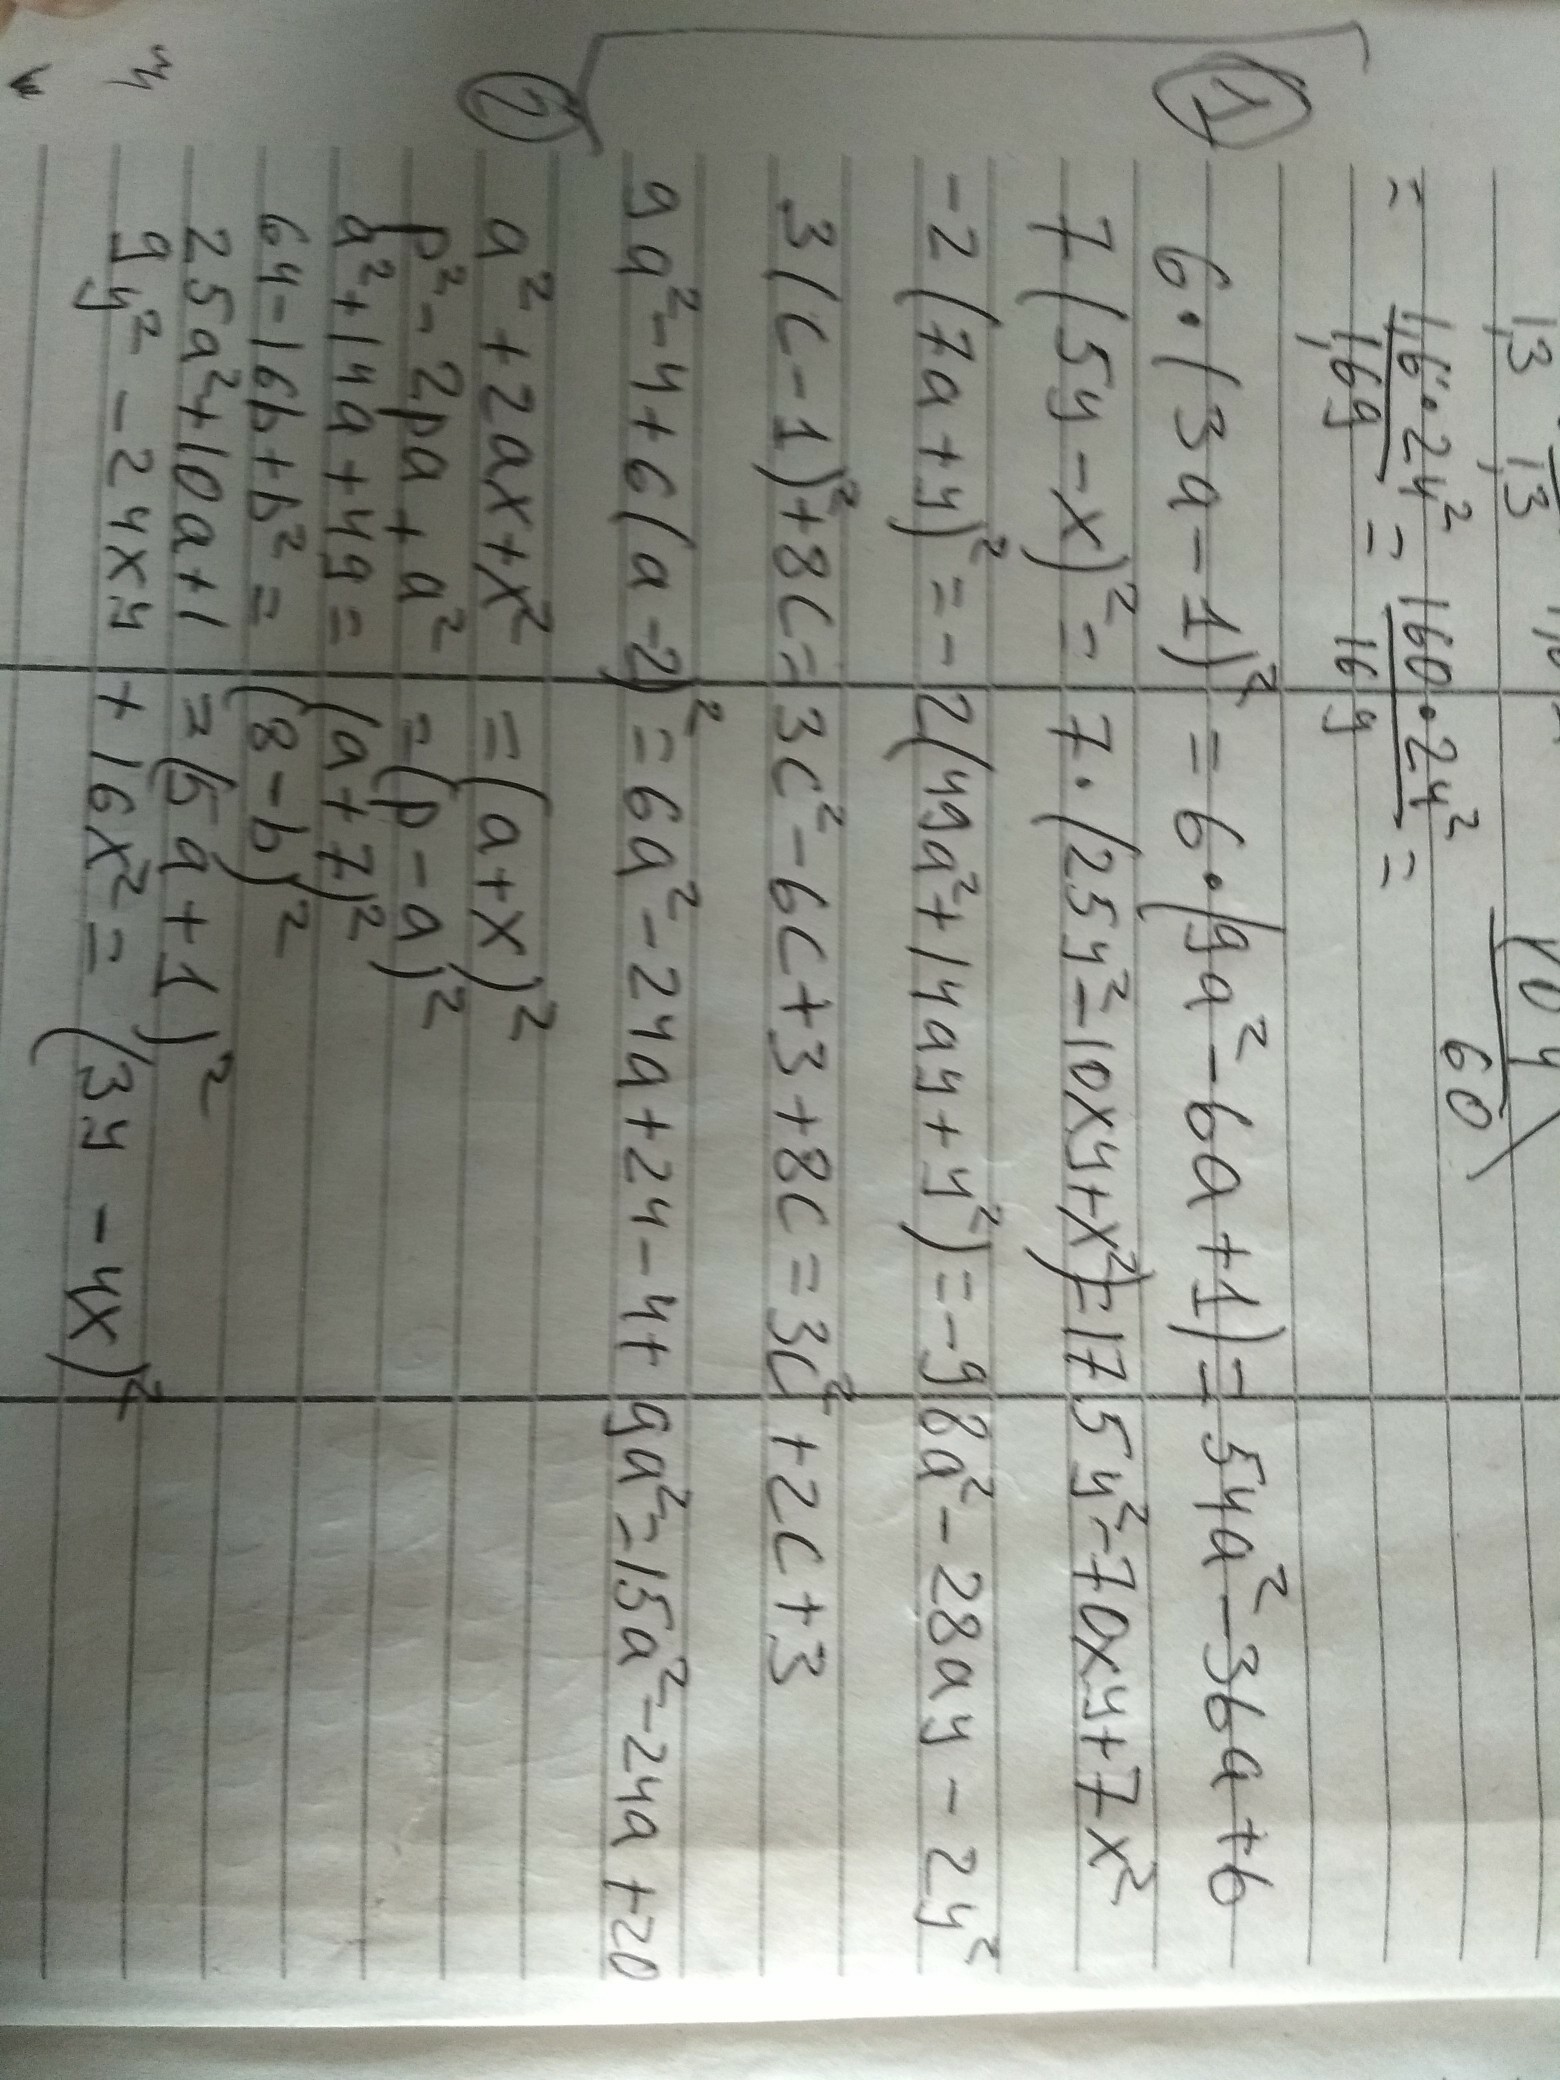 1,3 1,3
104
60
= 1,6·24² / 1,69 = 160·24² / 169 =
① 6·(3a-1)² = 6·(9a²-6a+1) = 54a²-36a+6
7(5y-x)² = 7·(25y²-10xy+x²)=175y²-70xy+7x²
-2(7a+y)² = -2(49a²+14ay+y²)=-98a²-28ay-2y²
3(c-1)²+8c = 3c²-6c+3+8c = 3c²+2c+3
9a²-4+6(a-2)² = 6a²-24a+24-4+9a²=15a²-24a+20
② a²+2ax+x² =(a+x)²
p²-2pa+a² =(p-a)²
a²+14a+49= (a+7)²
64-16b+b²= (8-b)²
25a²+10a+1 =(5a+1)²
9y²-24xy+16x²=(3y-4x)²